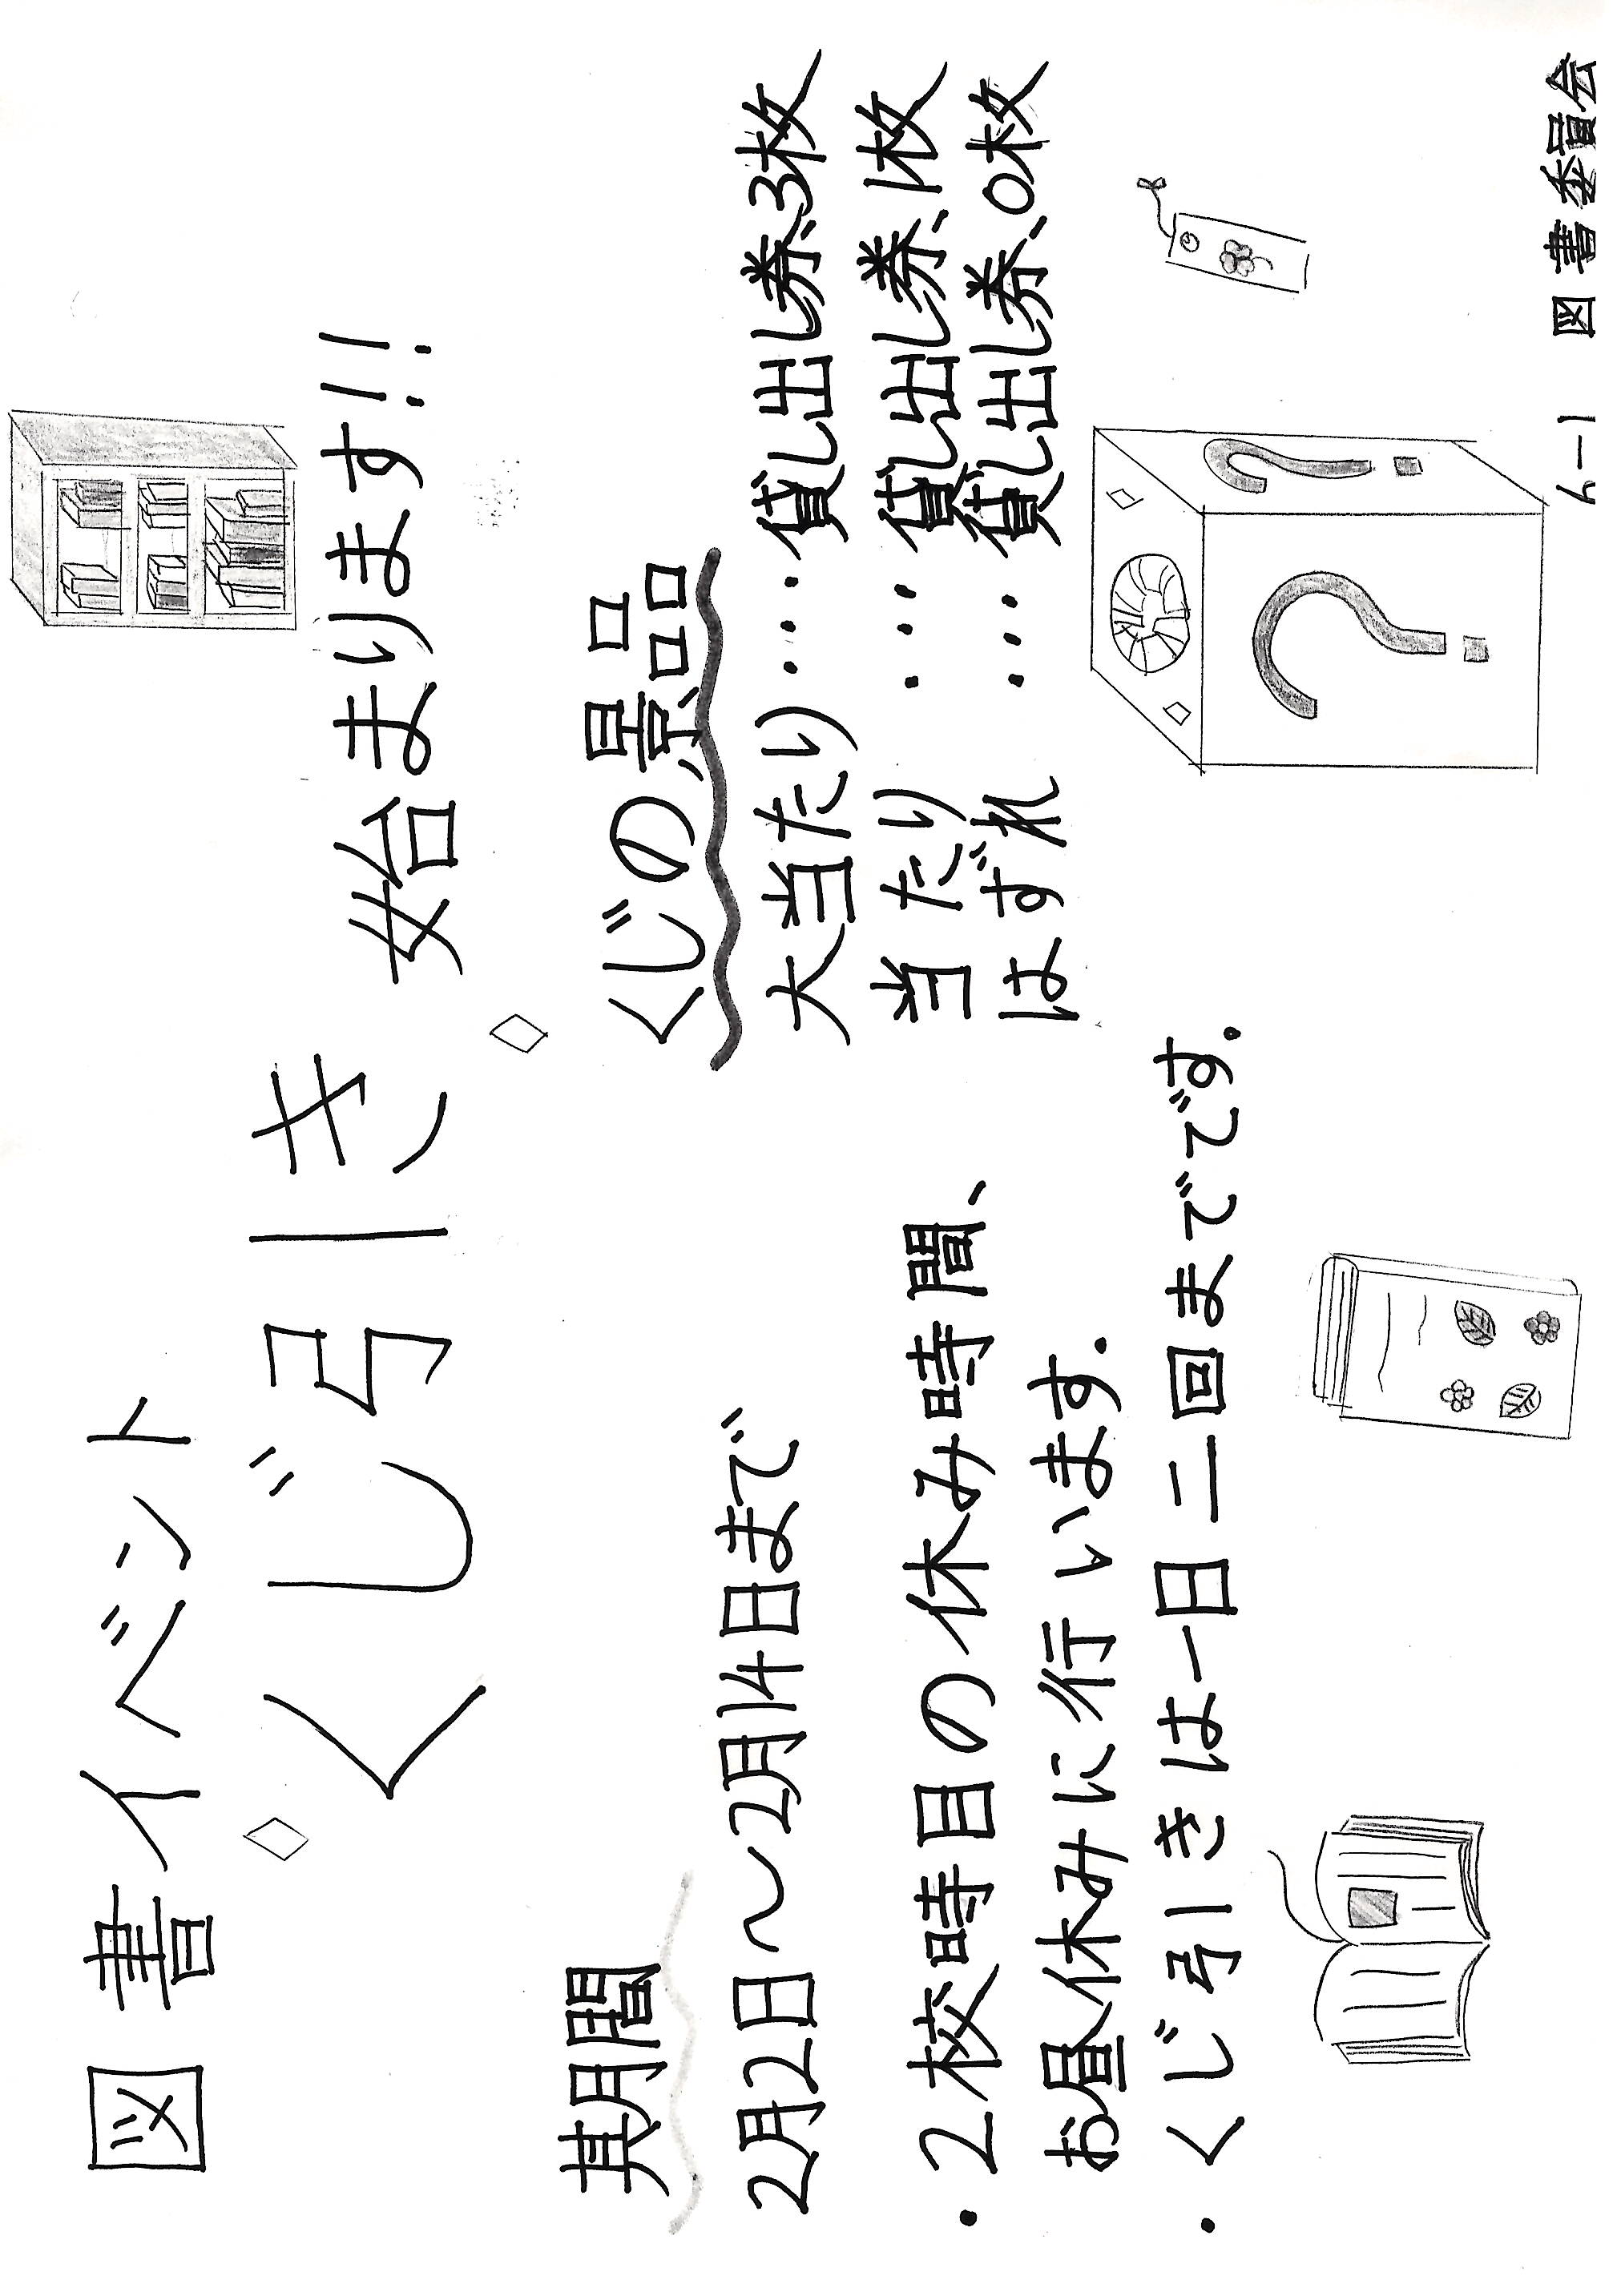 図書イベント
くじ引き 始まります!!
期間
2月2日～2月14日まで
・2校時目の休み時間、
お昼休みに行います.
・くじ引きは一日二回までです.
くじの景品
大当たり…貸し出し券、3枚
当たり…貸し出し券、1枚
はずれ…貸し出し券、0枚
6-1 図書委員会